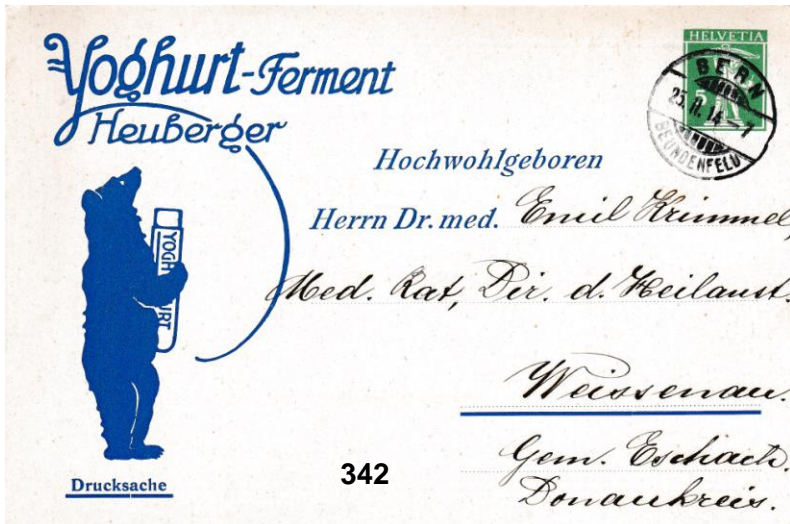 Yoghurt-Ferment
Heuberger
HELVETIA
5
BERN
25.II.14-7
BEUNDENFELD
Hochwohlgeboren
Herrn Dr. med. Emil Krimmel,
Med. Rat, Dir. d. Heilanst.
YOGHURT
Weissenau.
Gem. Eschach.
Donaukreis.
342
Drucksache